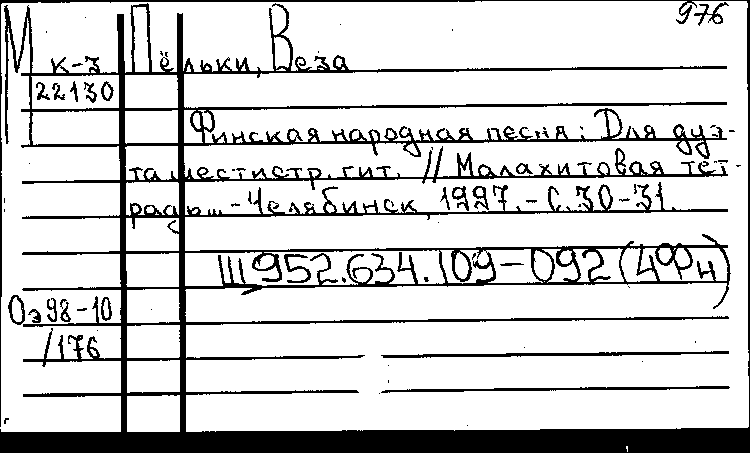 976
М к-з Пёльки, Веза
22130
Финская народная песня: Для дуэ-
та шестистр. гит. // Малахитовая тет-
радь... - Челябинск, 1997. - С. 30-31.
Щ952.634.109-092(4Фн)
Оэ98-10
/176